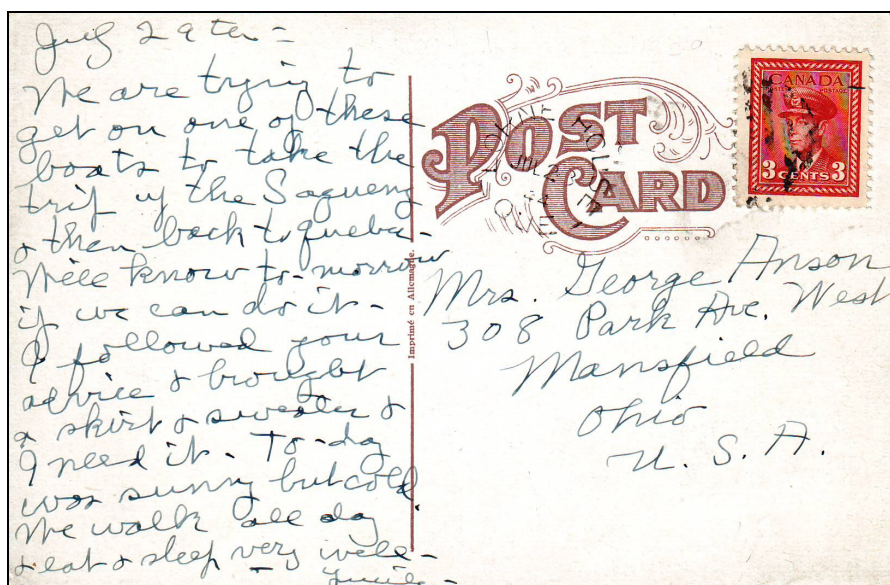 July 29th =
We are trying to
get on one of these
boats to take the
trip up the Saguenay
& then back to Quebec -
Will know to-morrow
if we can do it -
I followed your
advice & brought
a skirt & sweater &
I need it - To-day
was sunny but cold.
We walk all day
& eat & sleep very well -
Lucile -
Imprimé en Allemagne.
POST
CARD
JUL
CANADA
POSTES POSTAGE
3 CENTS 3
Mrs. George Anson
308 Park Ave. West
Mansfield
Ohio
U. S. A.